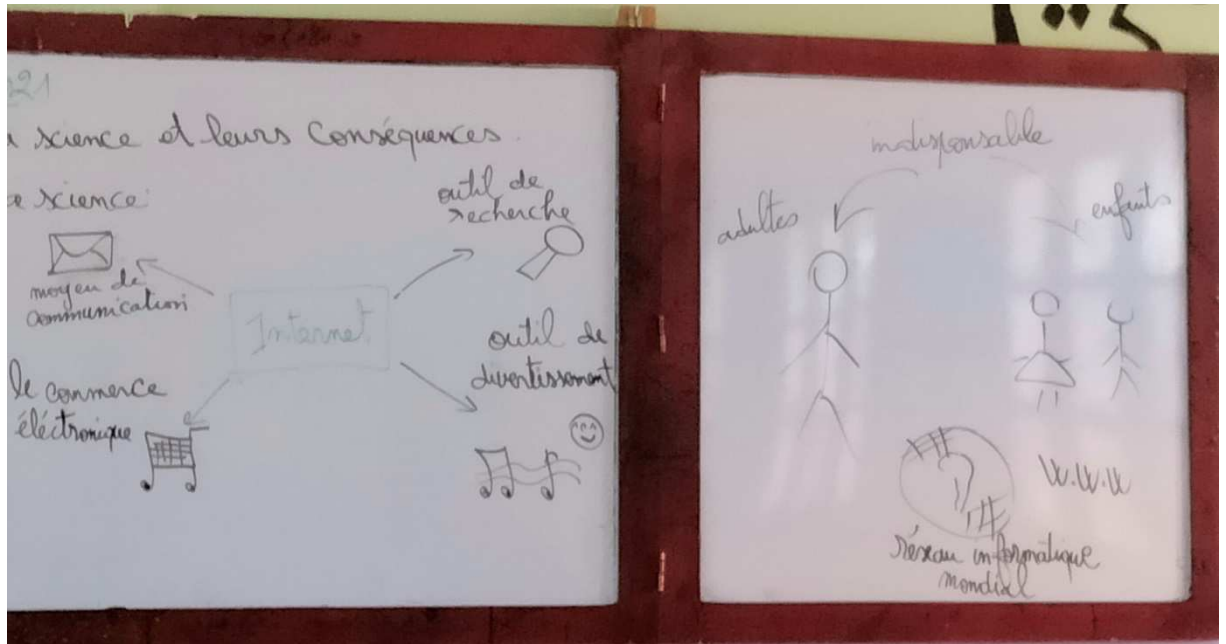 21
science et leurs Conséquences.
science:
moyen de
communication
Internet
outil de
recherche
outil de
divertissement
le commerce
éléctronique
indispensable
adultes
enfants
W.W.W
réseau informatique
mondial